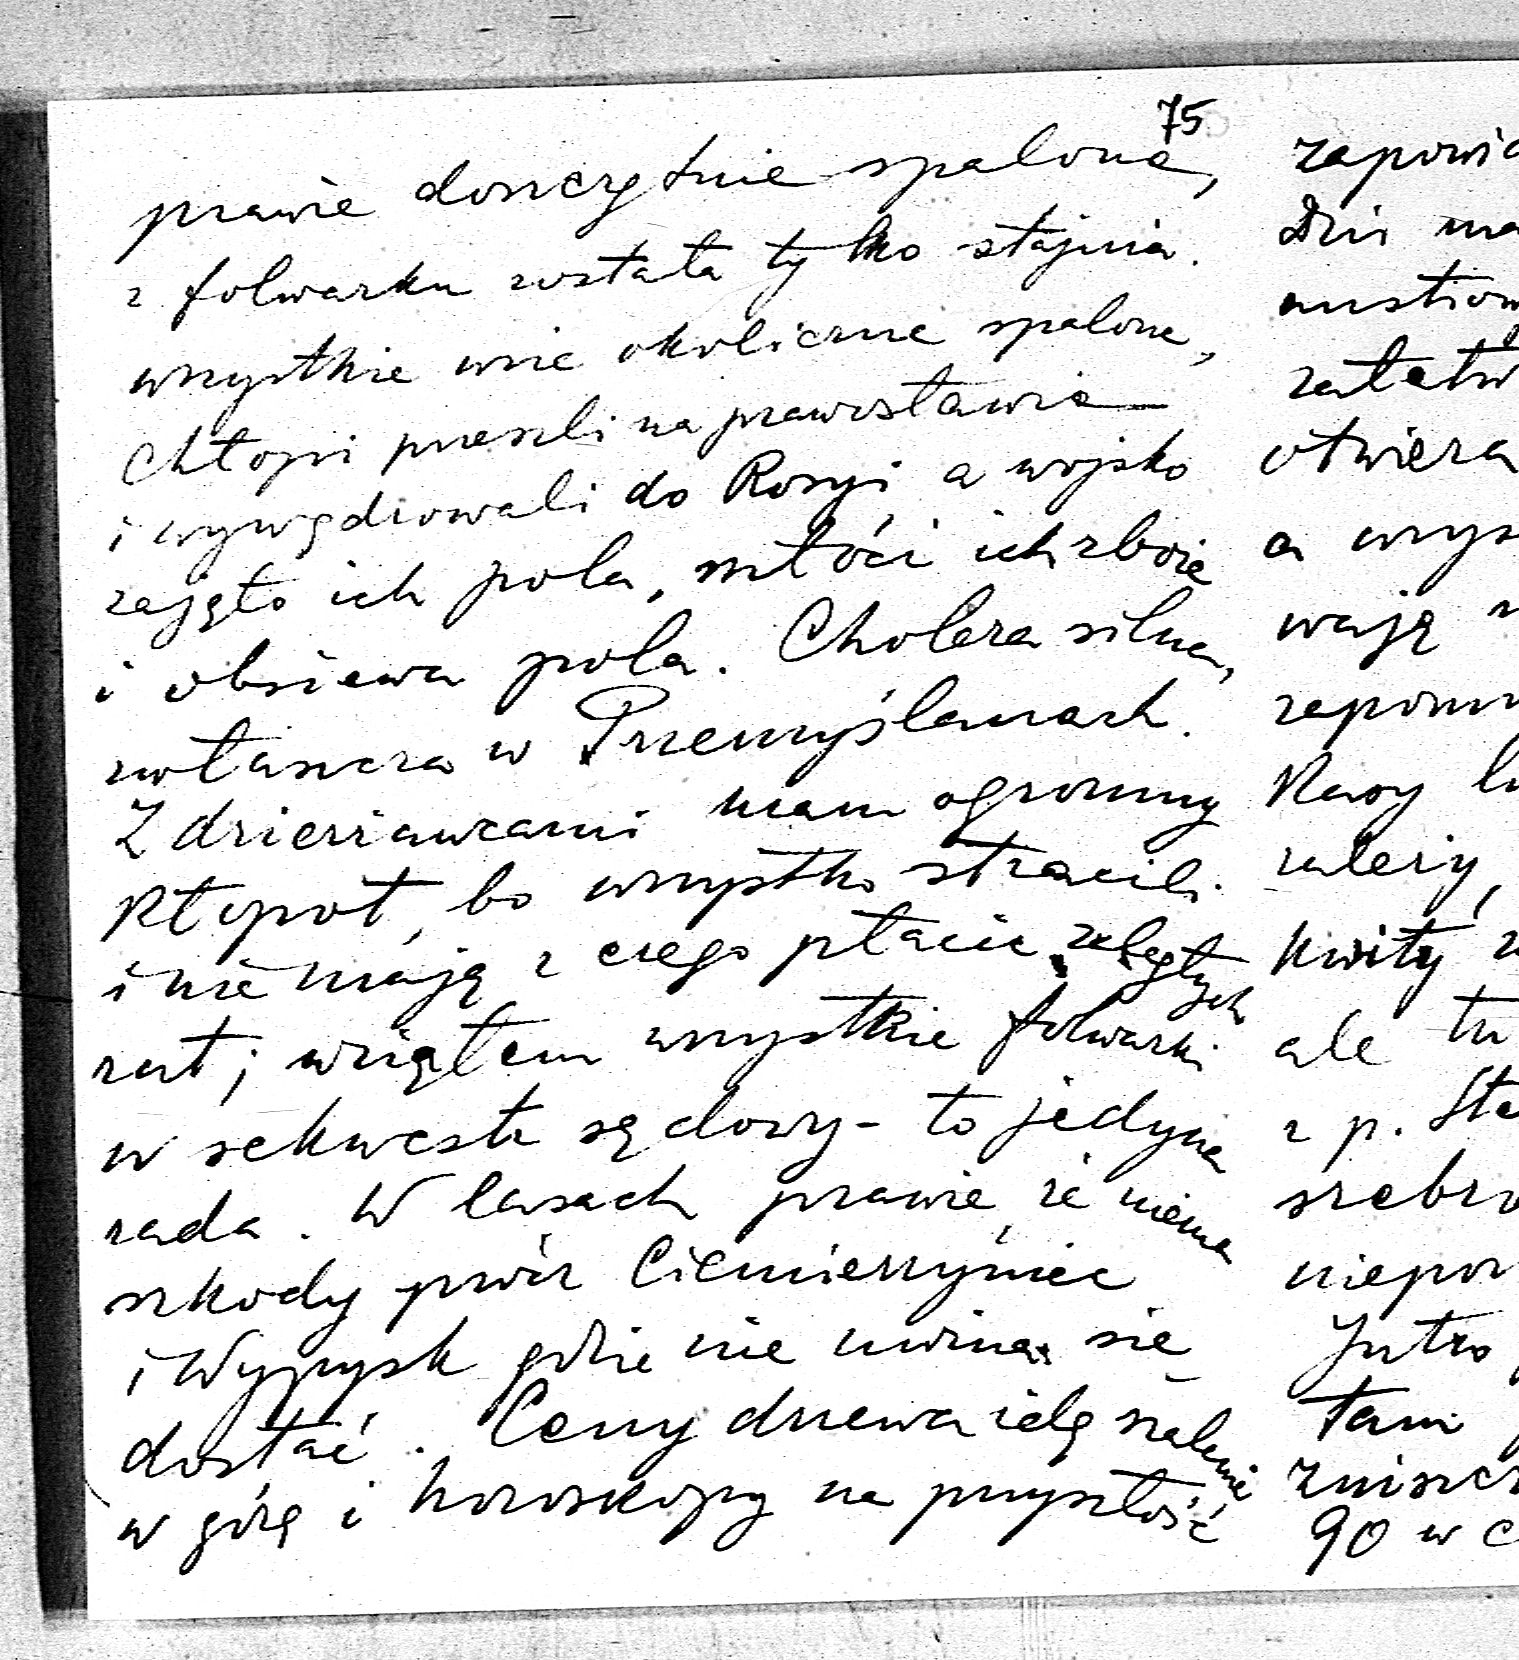 75
prawie doszczętnie spalone,
z folwarku została tylko stajnia.
wszystkie wsie okoliczne spalone,
chłopi przeszli na prawosławie
i wywędrowali do Rosyi, a wojsko
zajęło ich pola, młóci ich zboże
i obsiewa pola. Cholera silna,
zwłaszcza w Przemyślanach.
Z dzierżawcami mam ogromny
kłopot, bo wszystko stracili
i nie mają z czego płacić zaległych
rat; wziąłem wszystkie folwarki
w sekwestr sądowy - to jedyna
rada. W lasach prawie, że niema
szkody prócz Ciemierzyniec
i Wypysk gdzie nie można się
dostać. Ceny drzewa idą szalenie
w górę i horoskopy na przyszłość
zapowia
Dziś ma
austrow
załatw
otwiera
a wys
wają
zapomn
Kasy
należy,
kwity z
ale tu
z p. Sta
srebro
niepor
Jutro
tam
zniszcz
90 w c